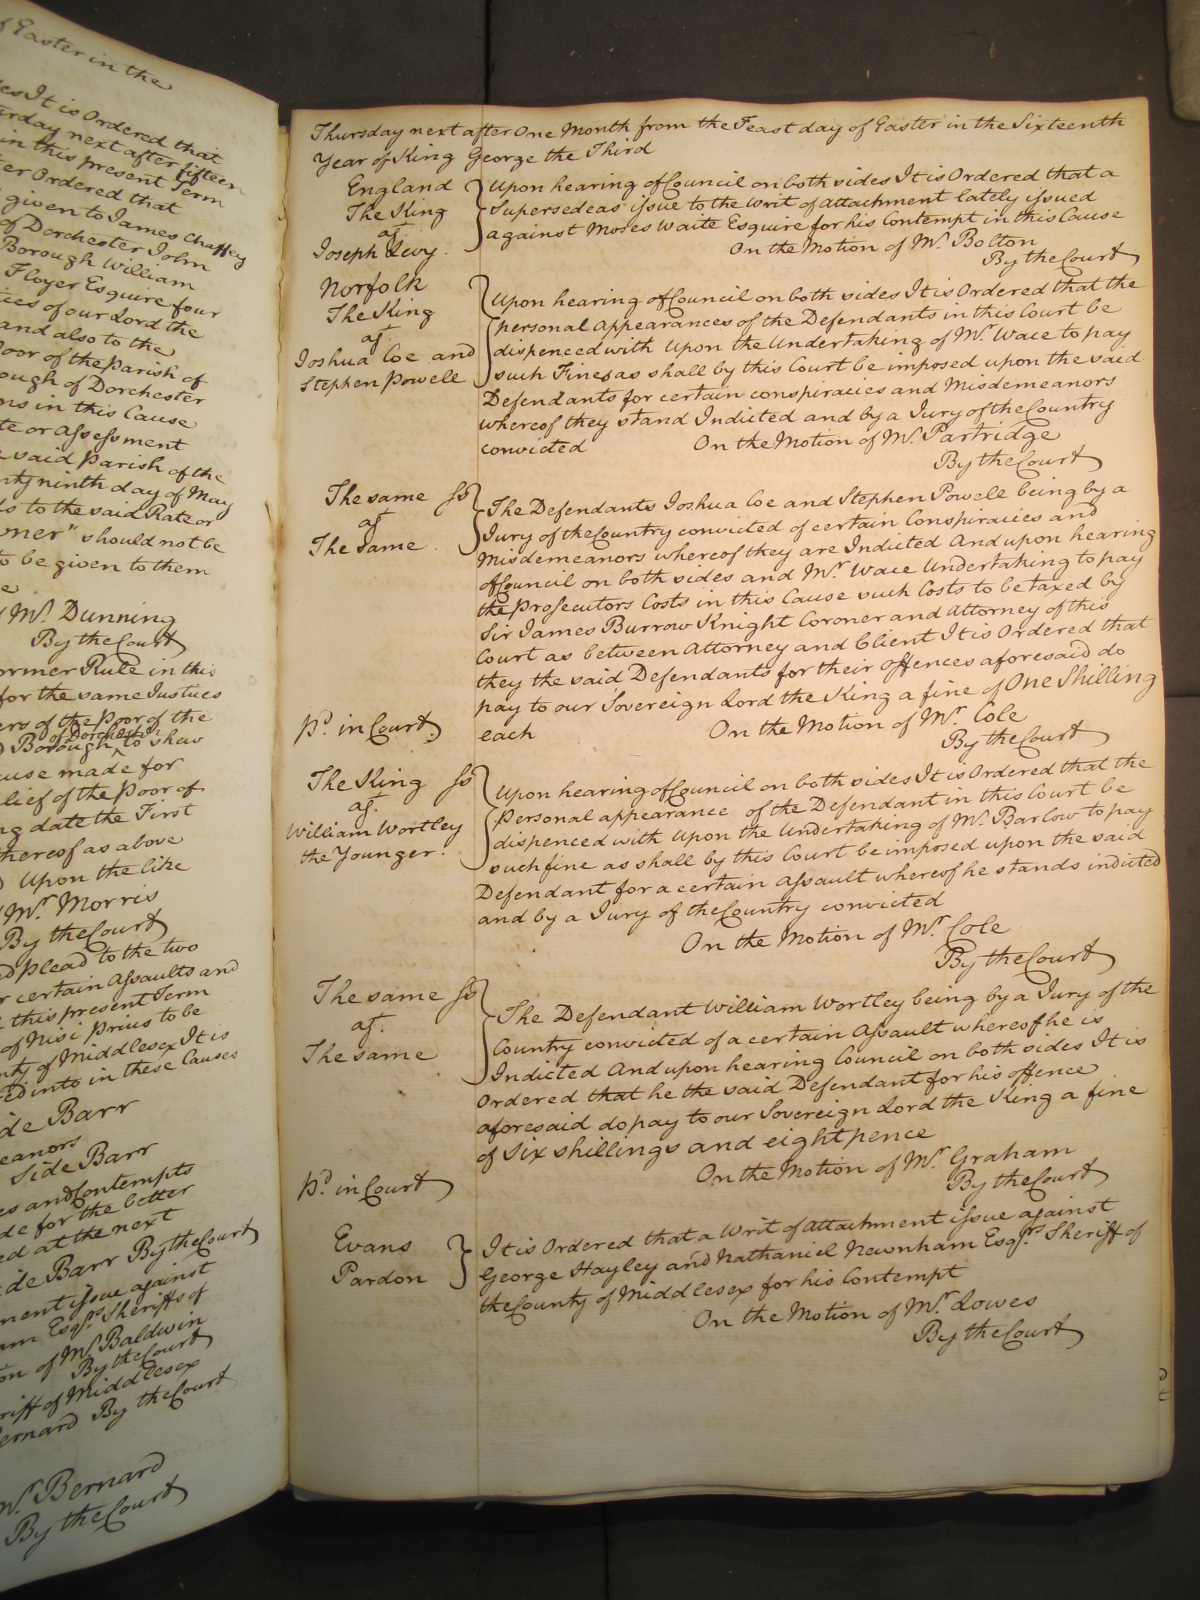 of Easter in the
es It is Ordered that
urday next after fifteen
in this present Term
er Ordered that
given to James Chaffey
of Dorchester John
Borough William
Floyer Esquire four
ices of our Lord the
and also to the
Poor of the Parish of
ough of Dorchester
ns in this Cause
te or Assessment
said Parish of the
nty ninth day of May
ls to the said Rate or
oner" should not be
o be given to them
e
Mr. Dunning
By the Court
ormer Rule in this
for the same Justices
ers of the Poor of the
of Dorchester
Borough to shew
ause made for
lief of the Poor of
ng date the First
thereof as above
Upon the like
Mr. Morris
By the Court
d plead to the two
r certain Assaults and
this present Term
of Nisi Prius to be
nty of Middlesex It is
ed into in these Causes
ide Barr
eanors
Side Barr
es and Contempts
de for the better
ed at the next
ide Barr By the Court
ment issue against
am Esqrs. Sheriffs of
on of Mr. Baldwin
By the Court
riff of Middlesex
ernard By the Court
Mr. Bernard
By the Court
Thursday next after One Month from the Feast day of Easter in the Sixteenth
Year of King George the Third
England
The King
agt.
Joseph Levy.
Upon hearing of Council on both sides It is Ordered that a
Supersedeas issue to the Writ of attachment lately issued
against Moses Waite Esquire for his Contempt in this Cause
On the Motion of Mr. Bolton
By the Court
Norfolk
The King
agt.
Joshua Coe and
Stephen Powell
Upon hearing of Council on both sides It is Ordered that the
personal Appearances of the Defendants in this Court be
dispenced with Upon the Undertaking of Mr. Wace to pay
such Fines as shall by this Court be imposed upon the said
Defendants for certain conspiracies and Misdemeanors
whereof they stand Indicted and by a Jury of the Country
convicted On the Motion of Mr. Partridge
By the Court
The same ss
agt
The Same.
The Defendants Joshua Coe and Stephen Powell being by a
Jury of the Country convicted of certain Conspiracies and
Misdemeanors whereof they are Indicted And upon hearing
of Council on both sides and Mr. Wace Undertaking to pay
the Prosecutors Costs in this Cause such Costs to be taxed by
Sir James Burrow Knight Coroner and Attorney of this
Court as between Attorney and Client It is Ordered that
they the said Defendants for their offences aforesaid do
pay to our Sovereign Lord the King a fine of One Shilling
each On the Motion of Mr. Cole
By the Court
Pd. in Court
The King ss
agt.
William Wortley
the Younger.
Upon hearing of Council on both sides It is Ordered that the
Personal appearance of the Defendant in this Court be
dispenced with Upon the Undertaking of Mr. Barlow to pay
such fine as shall by this Court be imposed upon the said
Defendant for a certain Assault whereof he stands indicted
and by a Jury of the Country convicted
On the Motion of Mr. Cole
By the Court
The same ss
agt.
The same
The Defendant William Wortley being by a Jury of the
Country convicted of a certain Assault whereof he is
Indicted And upon hearing Council on both sides It is
Ordered that he the said Defendant for his offence
aforesaid do pay to our Sovereign Lord the King a fine
of Six shillings and eight pence
On the Motion of Mr. Graham
By the Court
Pd. in Court
Evans
Pardon
It is Ordered that a Writ of Attachment issue against
George Hayley and Nathaniel Newnham Esqrs. Sheriff of
the County of Middlesex for his Contempt
On the Motion of Mr. Lowes
By the Court